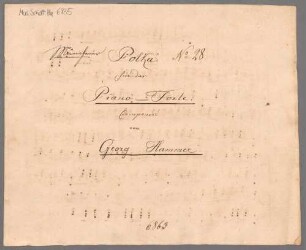 Mus. Schott Ha 6785
Polka No. 28
für das
Piano-Forte.
Componiert
von
Georg Hammer
6863